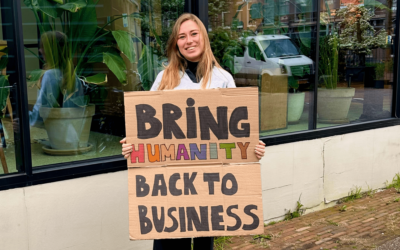 BRiNG
HUMANiTY
BACK TO
BUSINESS